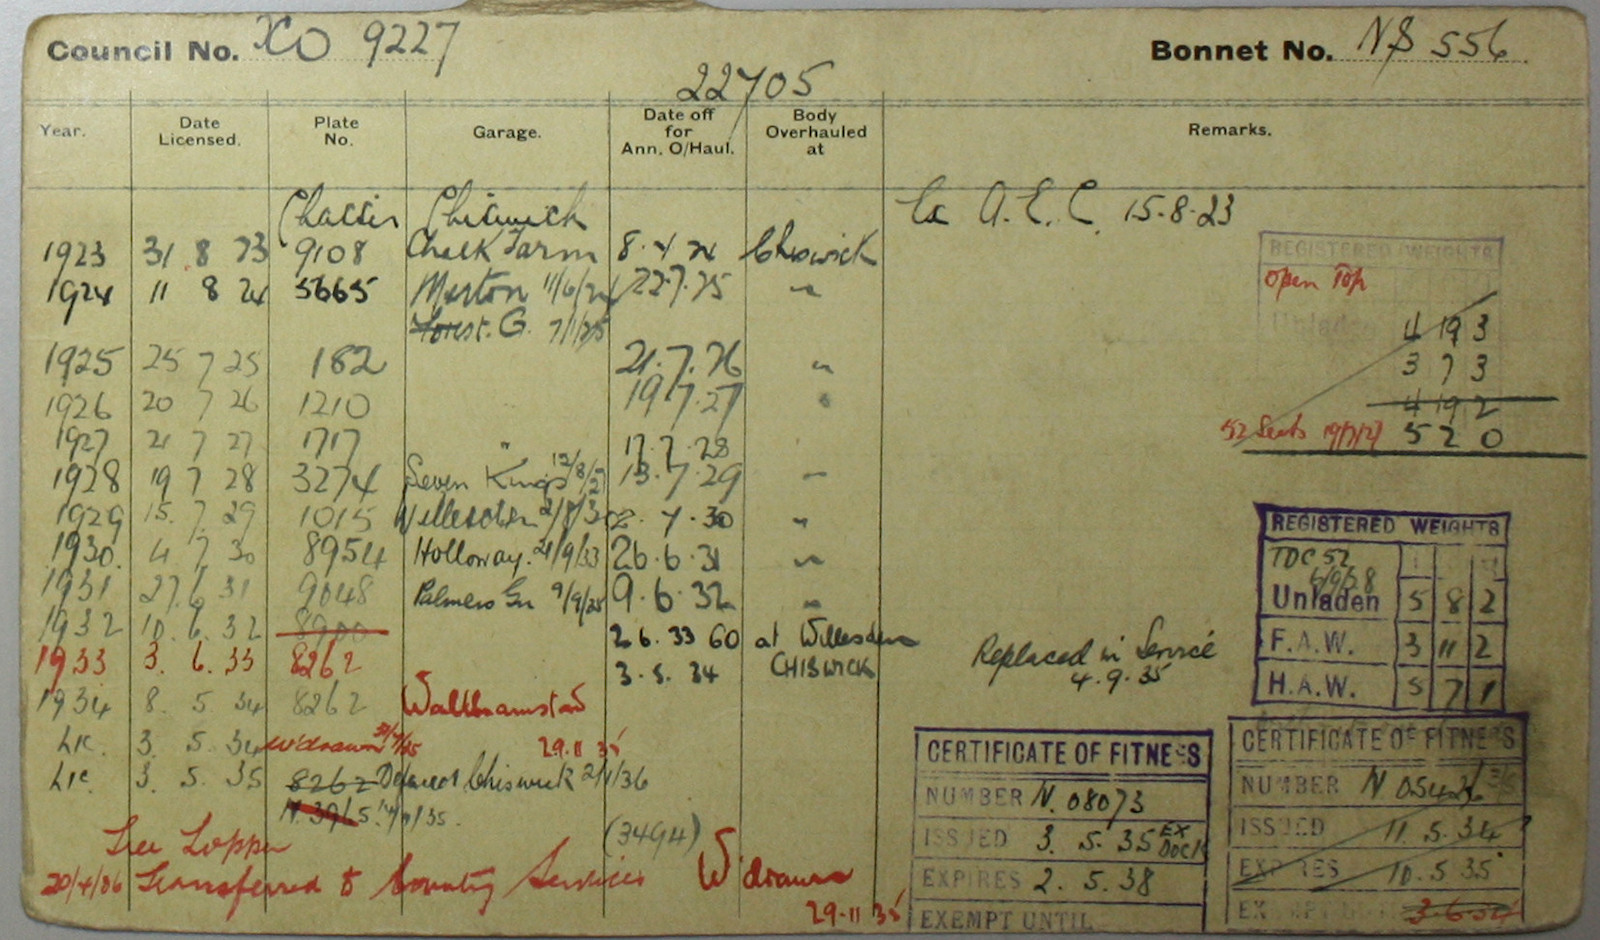 Council No. XO 9227 Bonnet No. NS 556
22705
Year. Date Licensed. Plate No. Garage. Date off for Ann. O/Haul. Body Overhauled at Remarks.
Chassis Chiswick Ex A.E.C. 15.8.23
1923 31 8 23 9108 Chalk Farm 8.4.24 Chiswick
1924 11 8 24 5665 Merton 11/6/24 22.7.25 "
Forest. G. 7/1/25
1925 25 7 25 182 21.7.26 "
1926 20 7 26 1210 19.7.27 "
1927 21 7 27 1717 " 17.7.28
1928 19 7 28 3274 Seven Kings 13.7.29 "
1929 15. 7. 29 1015 Willesden 2.7.30 "
1930. 4 7 30 8954 Holloway. 21/9/33 26.6.31 "
1931 27. 6 31 9048 Palmers Gn 9/9/35 9.6.32 "
1932 10. 6. 32 8900 2 6. 33 60 at Willesden
1933 3. 6. 33 8262 3.5.34 CHISWICK
1934 8. 5. 34 8262 Walthamstow
Lic. 3. 5. 34 W'drawn 29.11 35
Lic. 3. 5. 35 8262 Chiswick 2/1/36
N. 3965.
(3494)
Tree Lopper
20/4/36 Transferred to County Services W'drawn
29.11 35
REGISTERED WEIGHTS
Open Top
Unladen 4 19 3
3 7 3
4 19 2
52 Seats 19/7/27 5 2 0
REGISTERED WEIGHTS
TDC 52
Unladen 5 8 2
F.A.W. 3 11 2
H.A.W. 5 7 1
Replaced in Service
4.9.35
CERTIFICATE OF FITNESS
NUMBER N. 08073
ISSUED 3. 5. 35 EX
EXPIRES 2. 5. 38
EXEMPT UNTIL
CERTIFICATE OF FITNESS
NUMBER N 05426
ISSUED 11. 5. 34
EXPIRES 10. 5 35
EXEMPT UNTIL 3.6.34